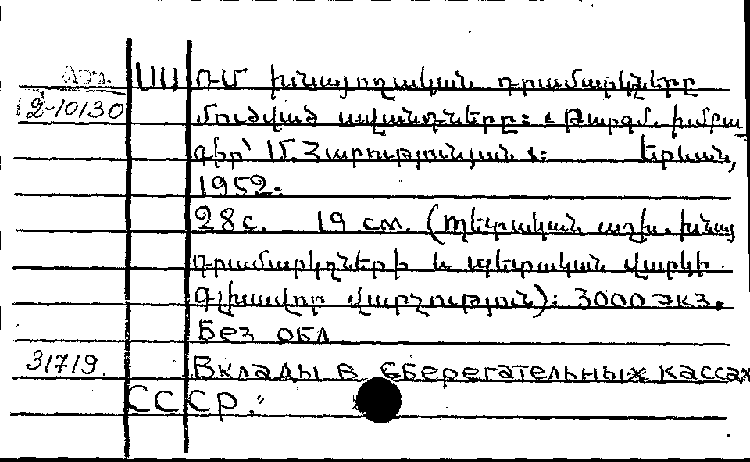 ՍՍՌՄ խնայողական դրամարկղները
2-10130 մուծված ավանդները: «Թարգմ. խմբա
գիր՝ Մ. Հարությունյան»: Երևան,
1952.
28 с. 19 см. (Պետական աշխ. խնայ
դրամարկղների և պետական վարկի
Գլխավոր վարչություն): 3000 экз.
Без обл
31719. Вклады в сберегательных кассах
СССР."